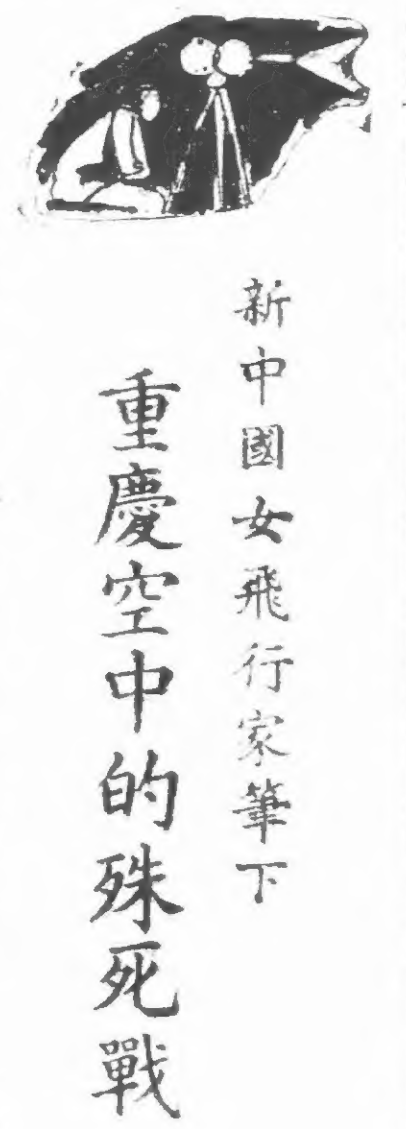 新中國女飛行家筆下
重慶空中的殊死戰